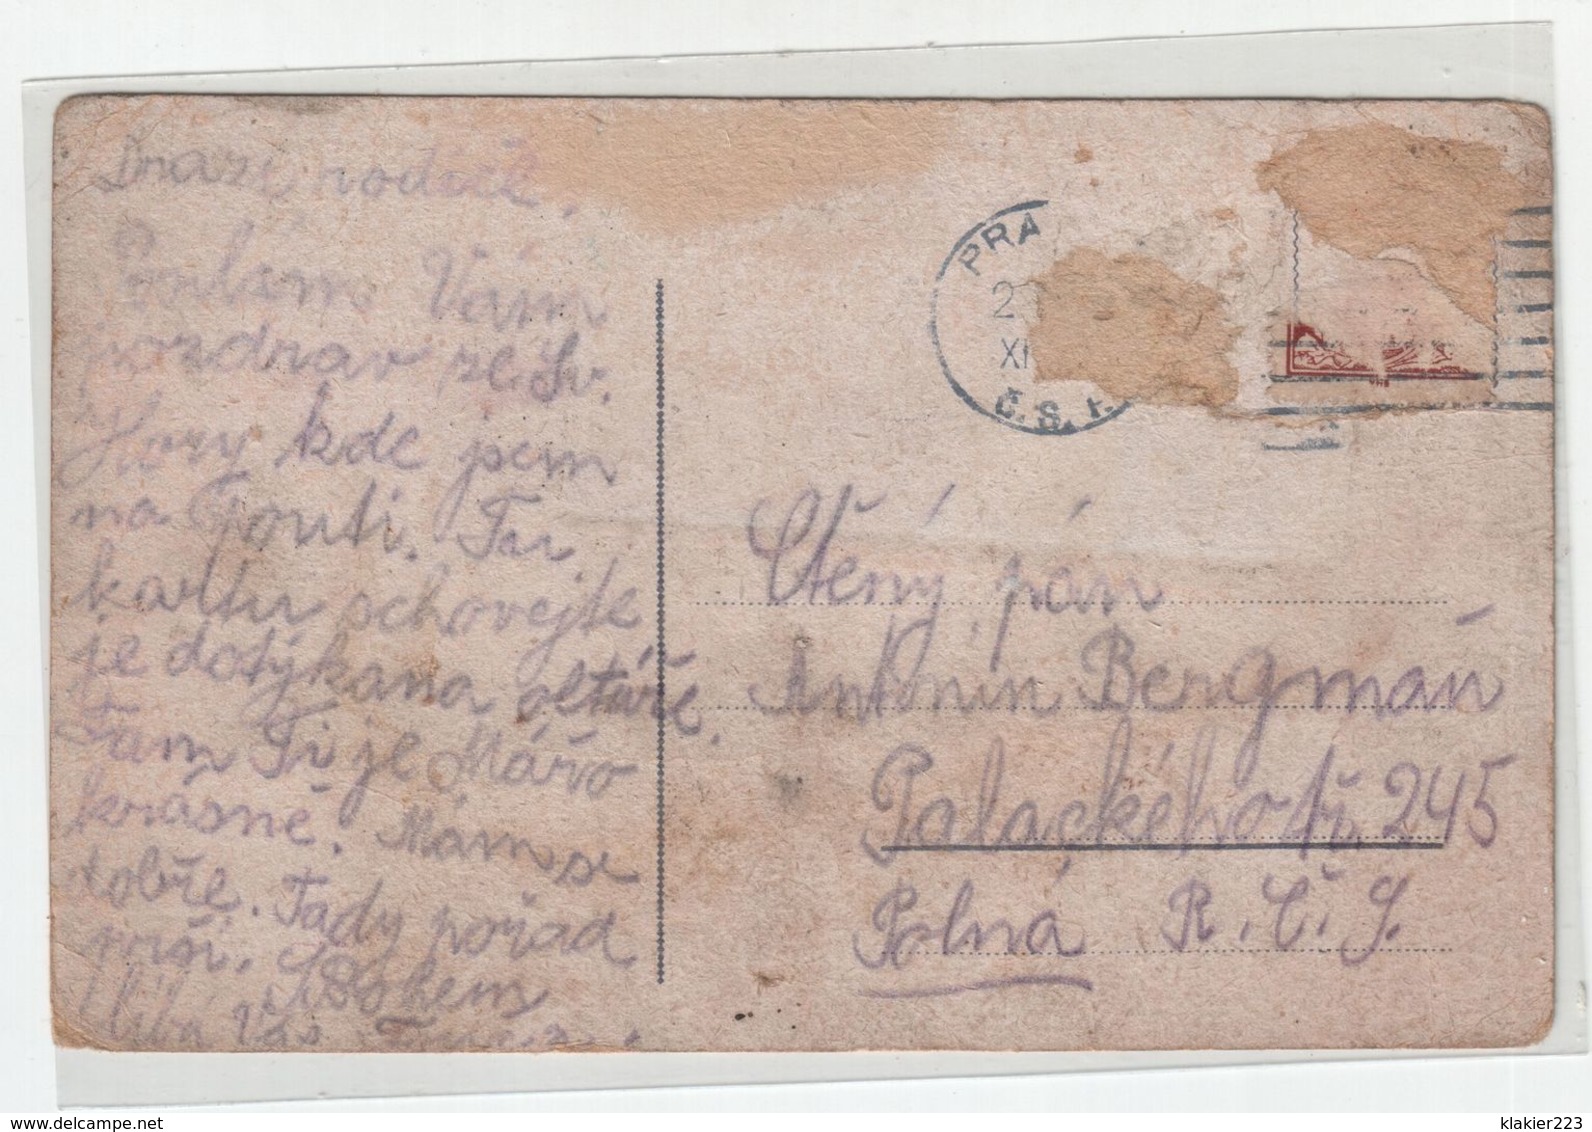 Drazí rodiče.
Posílám Vám
pozdrav ze Sv.
Hory kde jsem
na pouti. Tu
kartu schovejte
je dotýkana oltáře.
Tam Ti je Mářo
krásně. Mám se
dobře. Tady pořad
prší. S Bohem
líbá Vás
PRA
2
XI
Č. S.
Ctěný pán
Antonín Bergman
Palackého tř. 245
Polná R. Č. S.
klakier223